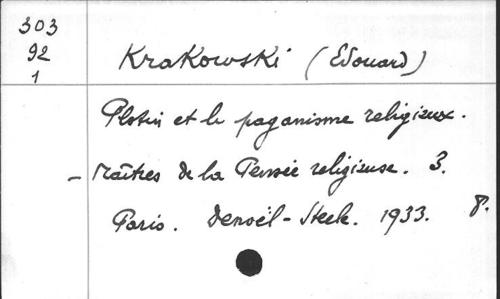 303
92
1
Krakowski (Edouard)
Plotin et le paganisme religieux.
- Maîtres de la Pensée religieuse. 3.
Paris. Denoël-Steele. 1933. 8.